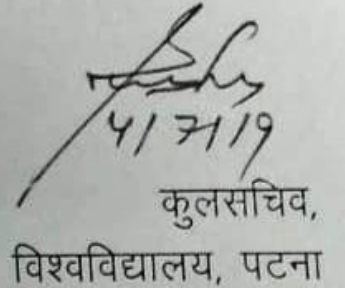 4/7/19
कुलसचिव,
विश्वविद्यालय, पटना